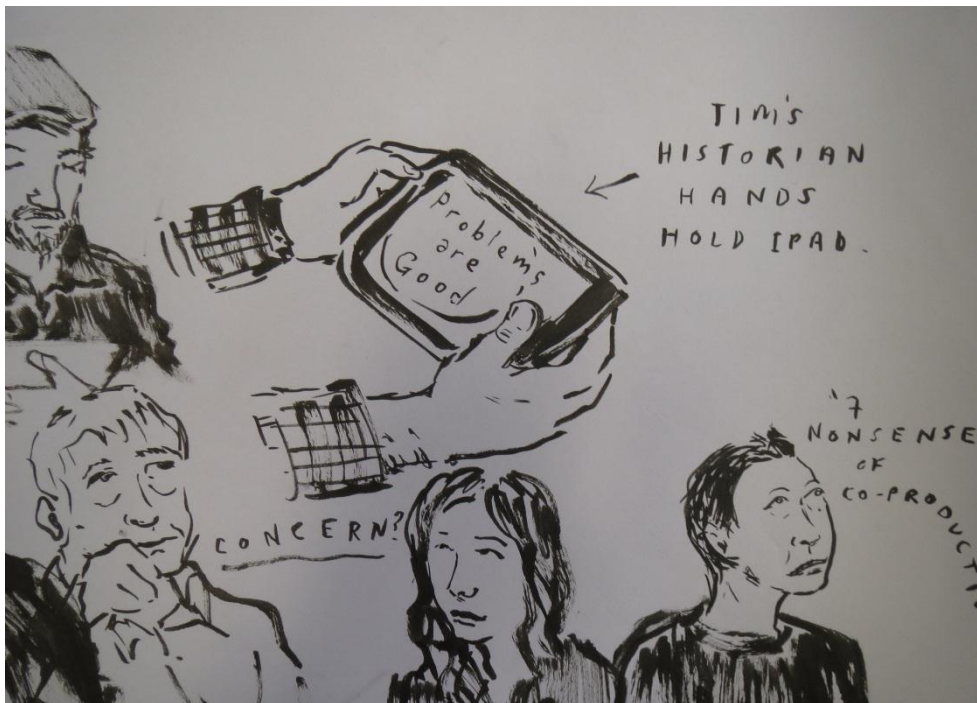 TIM'S
HISTORIAN
HANDS
HOLD IPAD.
Problems
are
Good
CONCERN?
'7
NONSENSE
OF
CO-PRODUCTI